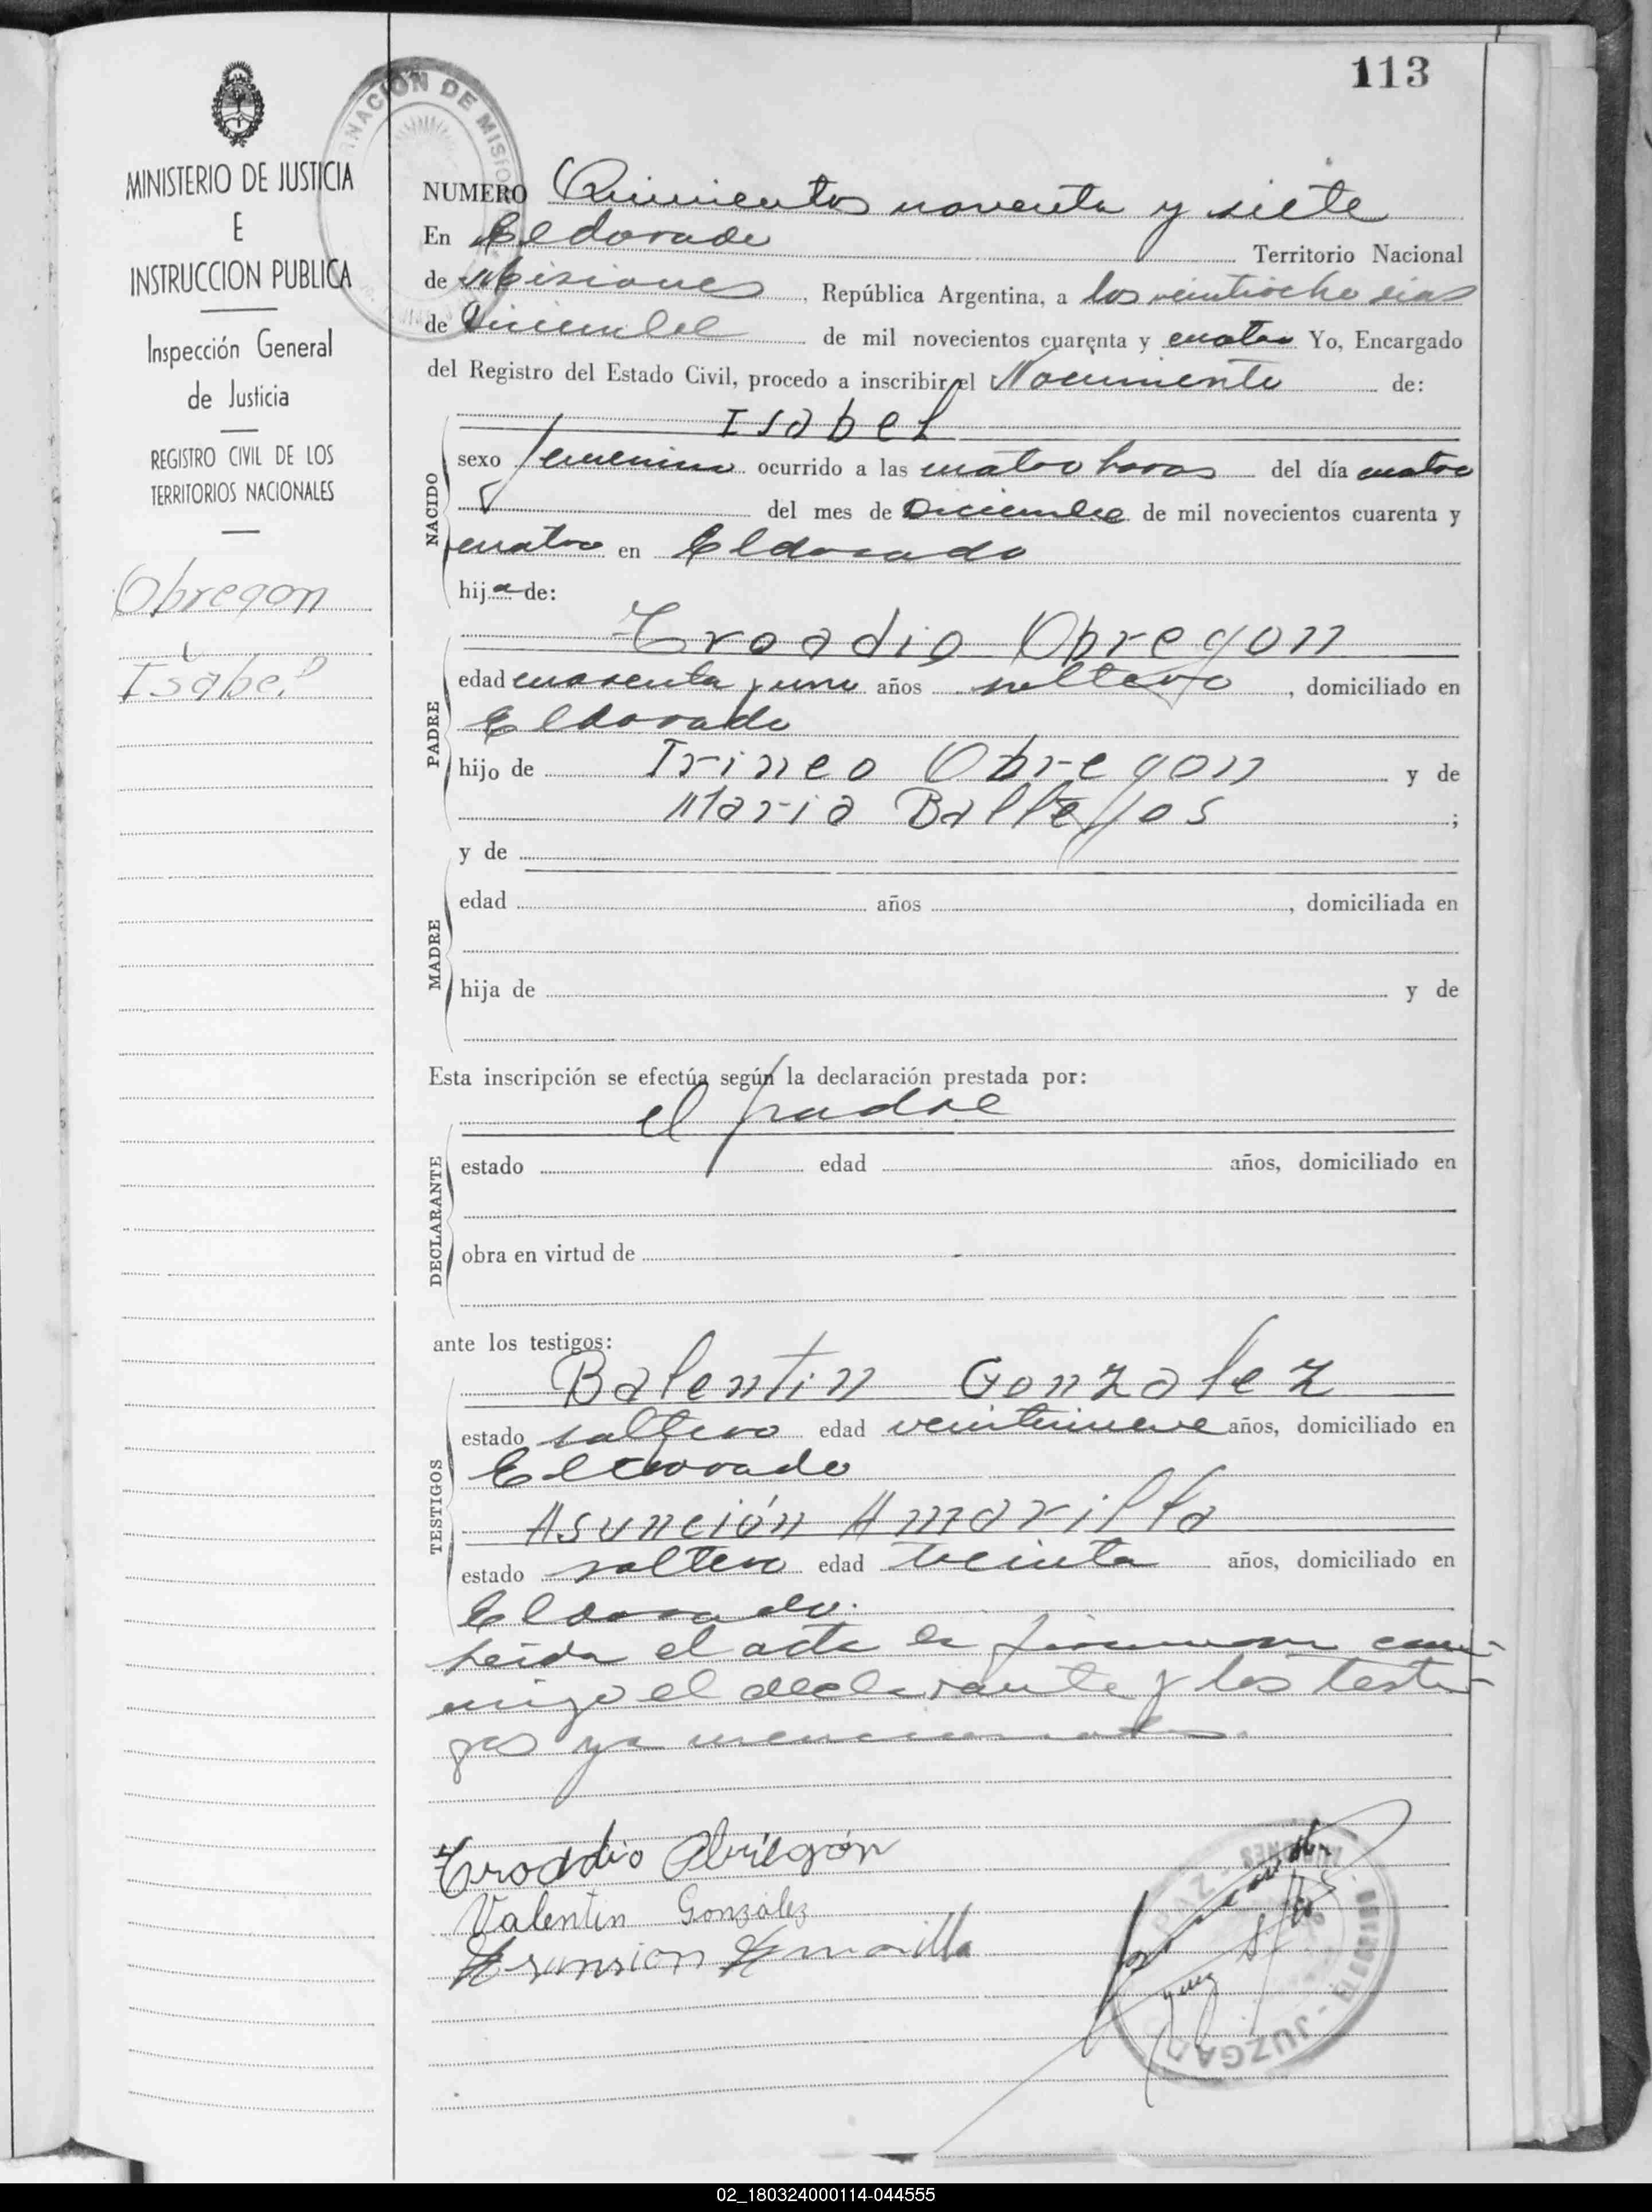 113
GOBERNACION DE MISIONES
MINISTERIO DE JUSTICIA
E
INSTRUCCION PUBLICA
Inspección General
de Justicia
REGISTRO CIVIL DE LOS
TERRITORIOS NACIONALES
Obregon
Isabel
NUMERO Quinientos noventa y siete
En Eldorado Territorio Nacional
de Misiones, República Argentina, a los veintiocho dias
de Diciembre de mil novecientos cuarenta y cuatro Yo, Encargado
del Registro del Estado Civil, procedo a inscribir el Nacimiento de:
Isabel
NACIDO
sexo femenino ocurrido a las cuatro horas del día cuatro
del mes de Diciembre de mil novecientos cuarenta y
cuatro en Eldorado
hija de:
Troadio Obregon
PADRE
edad cuarenta y uno años soltero, domiciliado en
Eldorado
hijo de Irineo Obregon y de
Maria Ballejos;
y de
MADRE
edad años, domiciliada en
hija de y de
Esta inscripción se efectúa según la declaración prestada por:
el padre
DECLARANTE
estado edad años, domiciliado en
obra en virtud de
ante los testigos:
Balentin Gonzalez
TESTIGOS
estado soltero edad veintinueve años, domiciliado en
Eldorado
Asunción Amarilla
estado soltero edad treinta años, domiciliado en
Eldorado.
Leida el acta la firmaron con-
migo el declarante y los testi-
gos ya mencionados.
Troadio Obregón
Valentin González
Asunsion Amarilla
JUZGADO
02_180324000114-044555